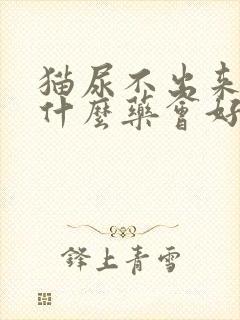 猫尿不出来
什麼藥會好
鋒上青雪